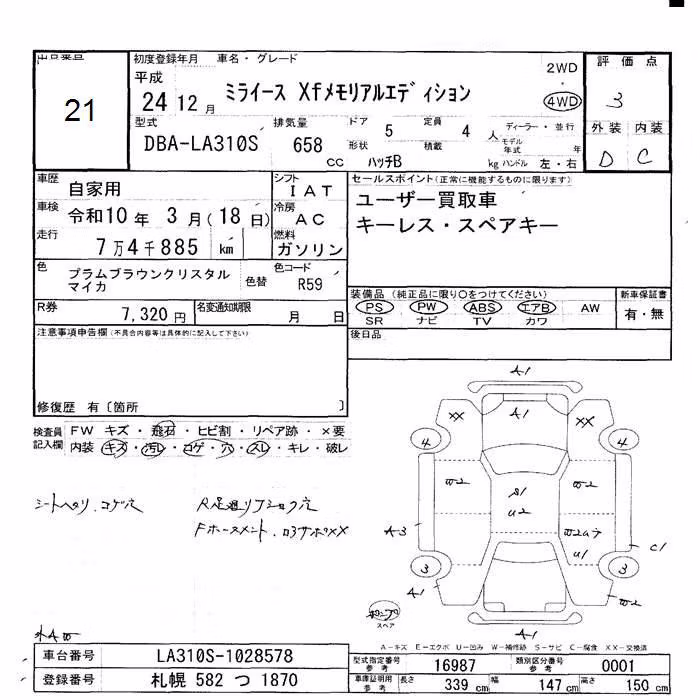 21
初度登録年月 車名・グレード
平成
24 12 月
ミライース Xfメモリアルエディション
2WD
4WD
評価点
3
外装 内装
D C
型式
DBA-LA310S
排気量
658
cc
ドア
5
形状
ハッチB
定員
4 人
積載
kg
ディーラー・並行
モデル年式 年
ハンドル 左・右
車歴
自家用
シフト
IAT
車検
令和10 年 3 月(18 日)
冷房
AC
走行
7万4千885 km
燃料
ガソリン
色
プラムブラウンクリスタル
マイカ
色替
色コード
R59
R券
7,320 円
名変通知期限
月 日
セールスポイント(正常に機能するものに限ります)
ユーザー買取車
キーレス・スペアキー
装備品(純正品に限り○をつけてください)
PS PW ABS エアB AW
SR ナビ TV カワ
新車保証書
有・無
後日品
注意事項申告欄(不具合内容等は具体的に記入して下さい)
修復歴 有〔箇所 〕
検査員記入欄
FW キズ・飛石・ヒビ割・リペア跡・×要
内装 キズ・汚レ・コゲ・穴・スレ・キレ・破レ
シートヘタリ、コゲ穴
A1
A1
XX
XX
4
4
W2
W2
U2
A3
U1
C1
3
3
A1
W2
A1
スペア
A-キズ E-エクボ U-凹み W-補修跡 S-サビ C-腐食 XX-交換済
車台番号
LA310S-1028578
登録番号
札幌 582 つ 1870
型式指定番号
参考
16987
類別区分番号
参考
0001
車庫証明用
参考
長さ
339 cm
幅
147 cm
高さ
150 cm